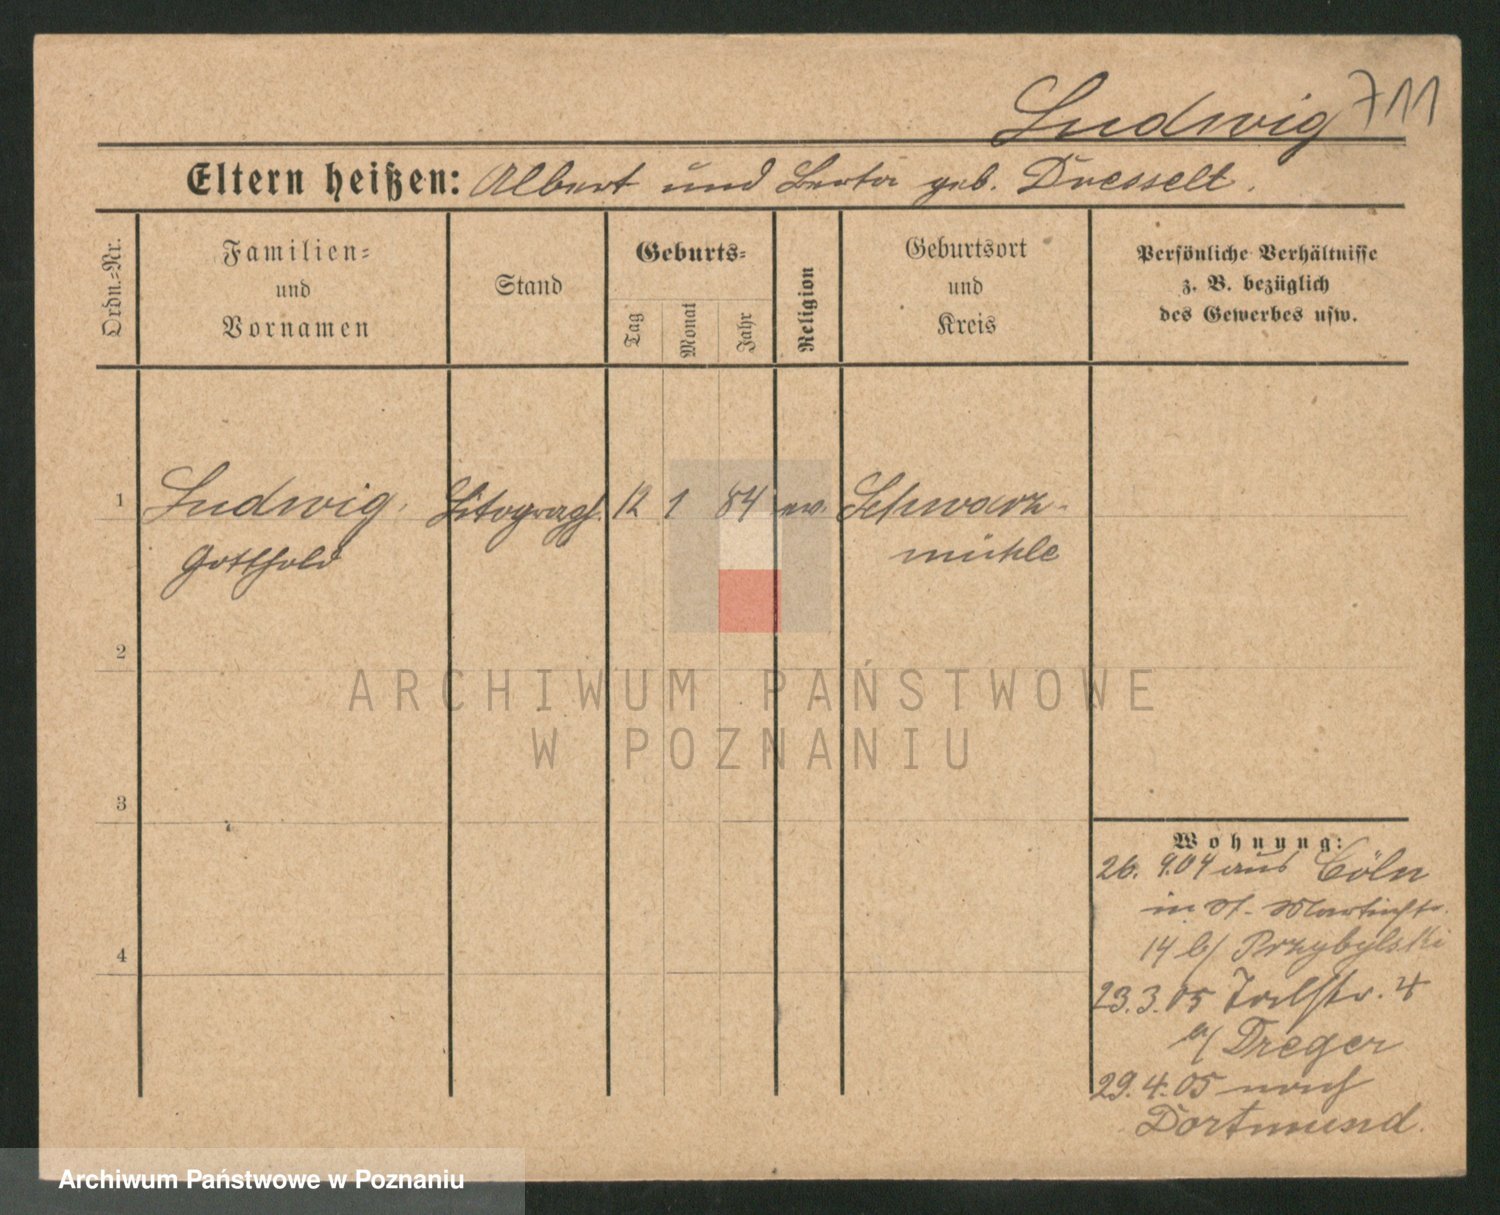 Ludwig 711
Eltern heißen: Albert und Berta geb. Dresselt.
Ordn.=Nr.
Familien=
und
Vornamen
Stand
Geburts=
Tag
Monat
Jahr
Religion
Geburtsort
und
Kreis
Persönliche Verhältnisse
z. B. bezüglich
des Gewerbes usw.
1 Ludwig, Litograph. 12 1 84 ev. Schwarz-
Gotthold mühle
2
3
4
Wohnung:
26. 9.04 aus Cöln
in St. Martinstr.
14 b/ Przybylski
23.3.05 Talstr. 4
b/ Dreger
29.4.05 nach
Dortmund.
ARCHIWUM PAŃSTWOWE
W POZNANIU
Archiwum Państwowe w Poznaniu